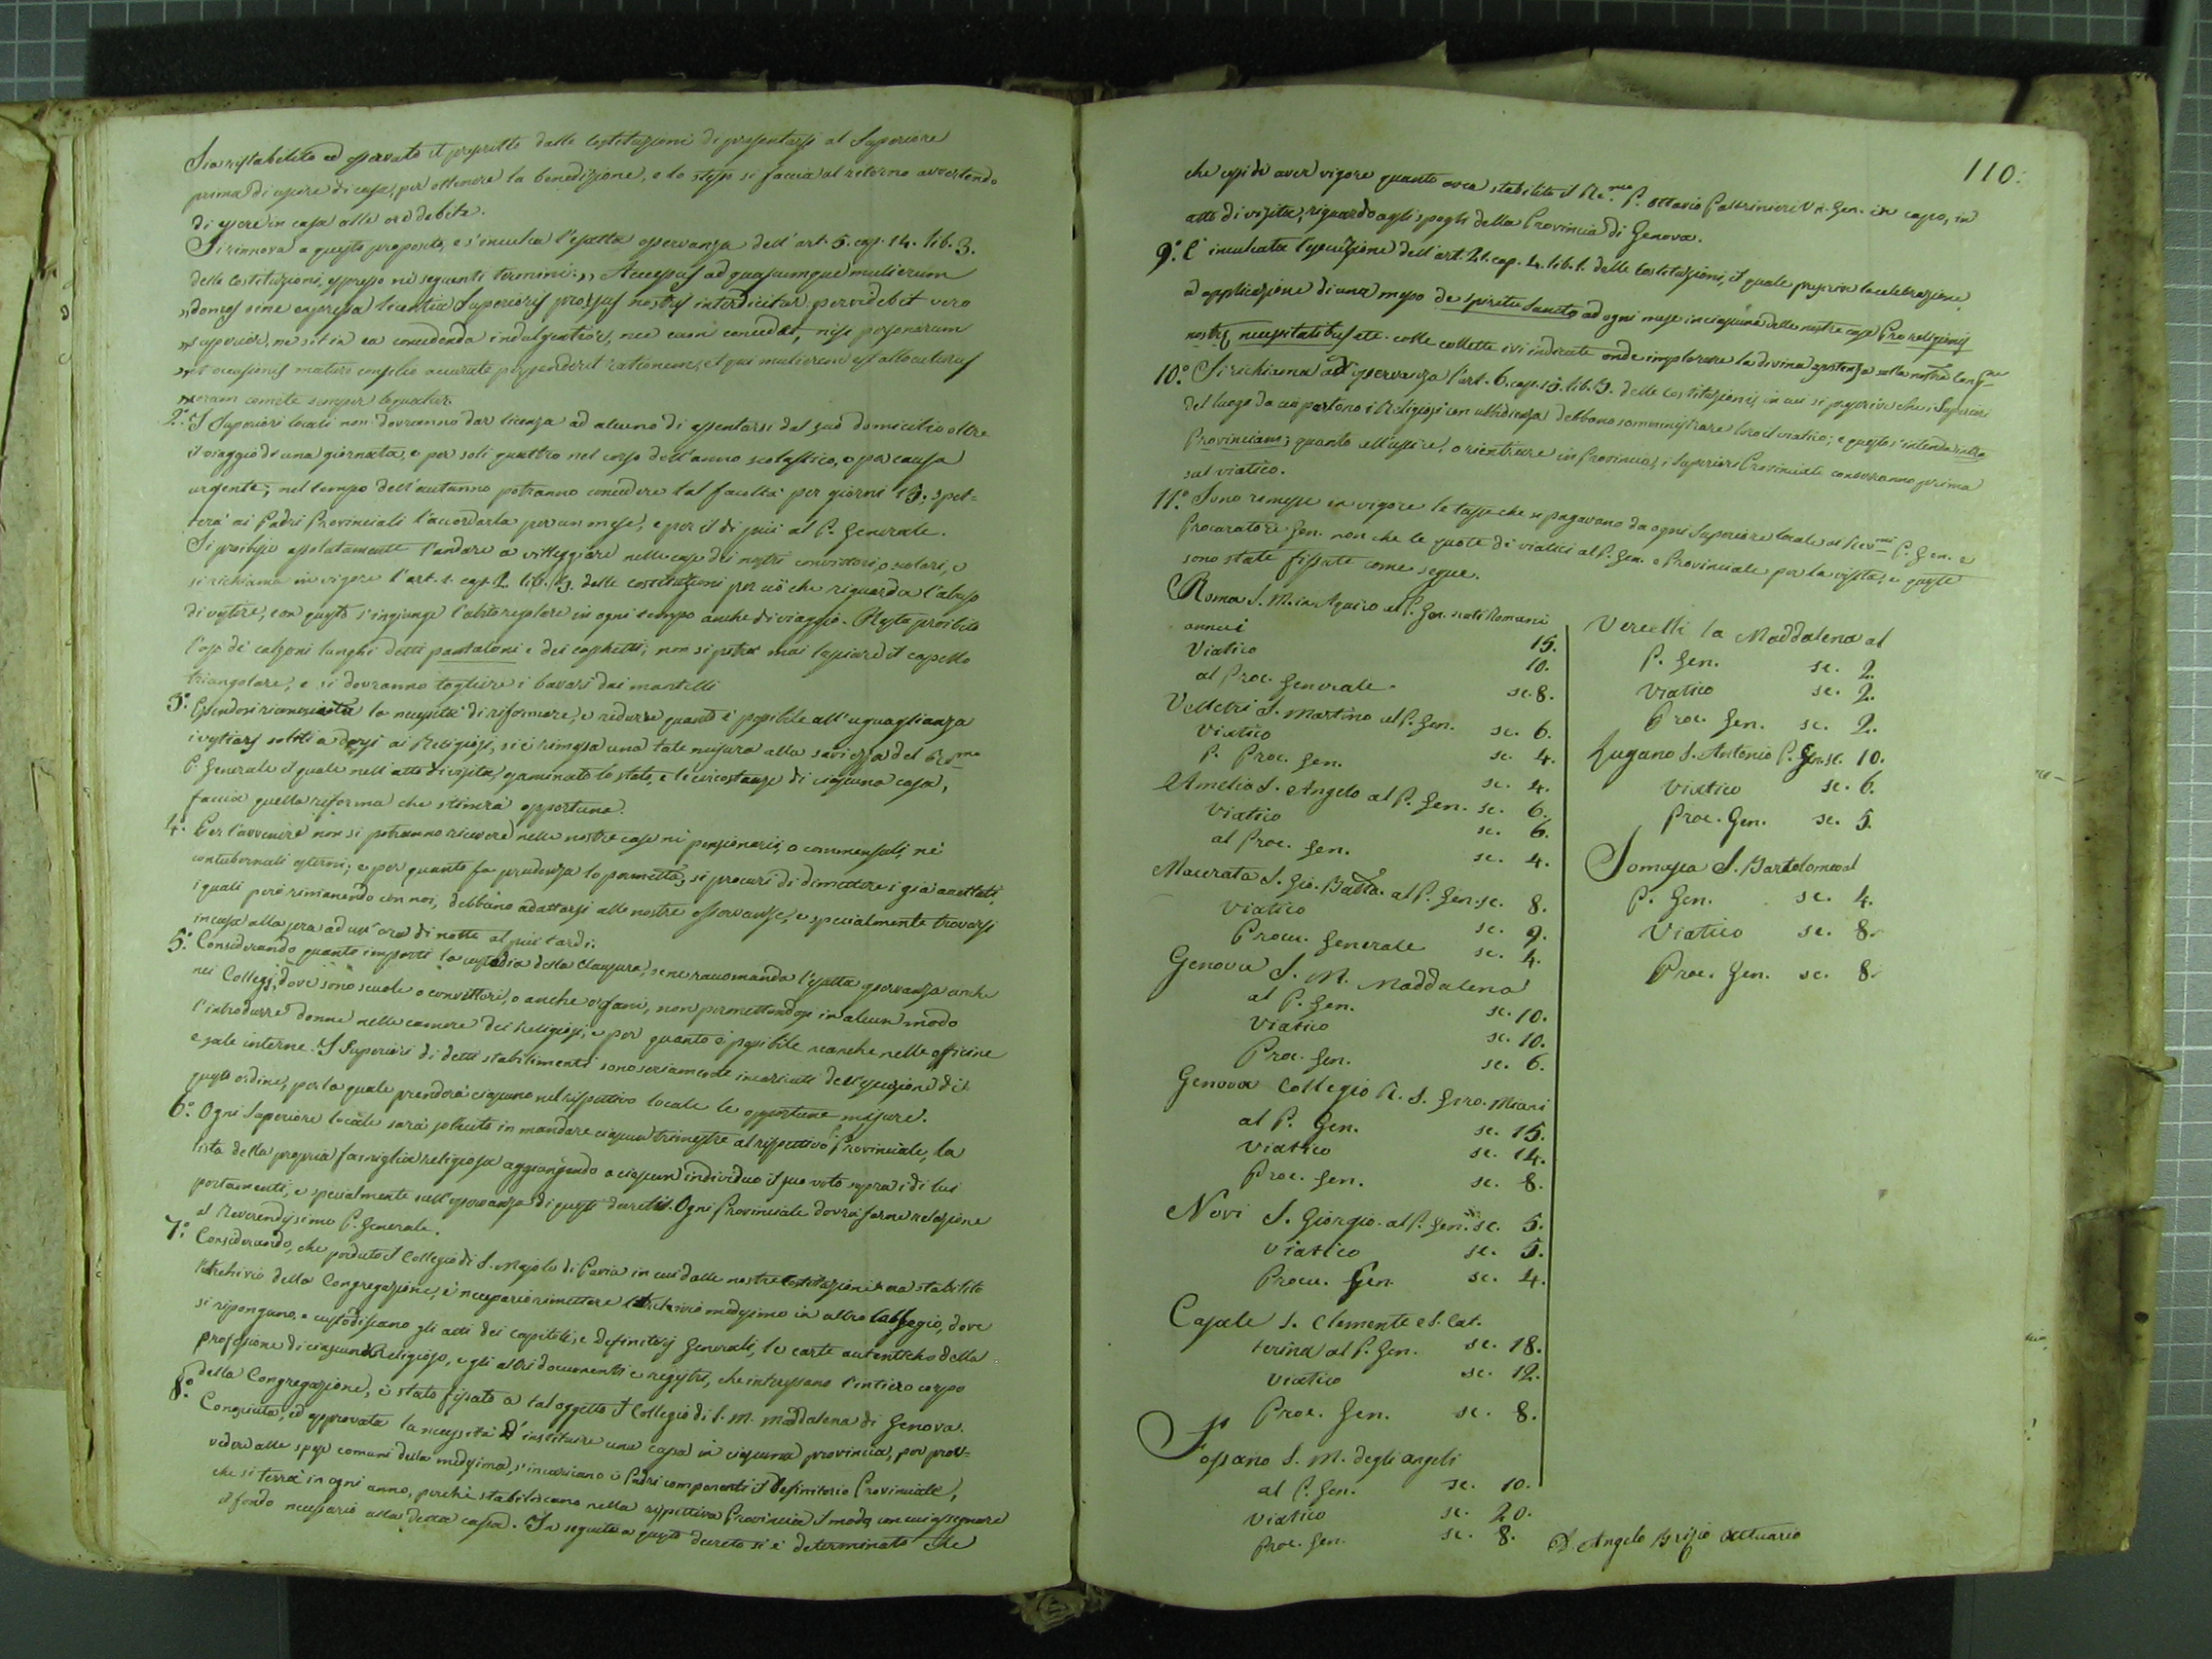 Sia ristabilito ed osservato il prescritto dalle Costituzioni di presentarsi al Superiore
prima di uscire di casa, per ottenere la benedizione, e lo stesso si faccia al ritorno avvertendo
di essere in casa alle ore debite.
Si rinnova a questo proposito, e s'inculca l'esatta osservanza dell'art. 5. cap. 14. lib. 3.
delle Costituzioni, espresso ne' seguenti termini: ,, Accessus ad quascumque mulierum
,, domos sine expressa licentia Superioris prorsus nostris interdicitur. pervidebit vero
,, superior, ne sit in ea concedenda indulgentior, nec eam concedat, nisi personarum
,, et occasionis maturo consilio accurate perpenderit rationem, et qui mulierem est allocuturus
,, coram comite semper loquatur.
2.° I Superiori locali non dovranno dar licenza ad alcuno di assentarsi dal suo domicilio oltre
il viaggio di una giornata, e per soli quattro nel corso dell'anno scolastico, e per causa
urgente; nel tempo dell'autunno potranno concedere tal facoltà per giorni 15; spet=
terà ai Padri Provinciali l'accordarla per un mese, e per il di più al P. Generale.
Si proibisce assolutamente l'andare a villeggiare nelle case dei nostri convittori, o scolari, e
si richiama in vigore l'art. 1. cap. 2. lib. 3. delle costituzioni per ciò che riguarda l'abuso
di vestire, con questo s'ingiunge l'abito regolare in ogni tempo anche di viaggio. Resta proibito
l'uso de' calzoni lunghi detti pantaloni e dei caschetti; non si potrà mai lasciare il capello
triangolare, e si dovranno togliere i bavari dai mantelli
3.° Essendosi riconosciuta la necessità di riformare, e ridurre quanto è possibile all'uguaglianza
i vestiarj soliti a darsi ai Religiosi, si è rimessa una tale misura alla saviezza del Rev.mo
P. Generale il quale nell'atto di visita, esaminato lo stato, e le circostanze di ciascuna casa,
faccia quella riforma che stimerà opportuna.
4.° Per l'avvenire non si potranno ricevere nelle nostre case nè pensionarj, o commensali, nè
contubernali esterni; e per quanto fa prudenza lo permette, si procuri di dimettere i già accettati,
i quali però rimanendo con noi, debbano adattarsi alle nostre osservanze, e specialmente trovarsi
in casa alla sera ad un'ora di notte al più tardi.
5.° Considerando quanto importi la custodia della Clausura, se ne raccomanda l'esatta osservanza anche
nei Collegj, dove sono scuole o convittori, o anche orfani, non permettendosi in alcun modo
l'introdurre donne nelle camere dei Religiosi, e per quanto è possibile neanche nelle officine
e sale interne. I Superiori di detti stabilimenti sono seriamente incaricati dell'esecuzione di
questo ordine, per la quale prenderà ciascuno nel rispettivo locale le opportune misure.
6.° Ogni Superiore locale sarà sollecito in mandare ciascun trimestre al rispettivo P. Provinciale, la
lista della propria famiglia religiosa aggiungendo a ciascun individuo il suo voto sopra i di lui
portamenti, e specialmente sull'osservanza di questi decreti. Ogni Provinciale dovrà farne relazione
al Reverendissimo P. Generale.
7.° Considerando, che perduto il Collegio di S. Majolo di Pavia in cui dalle nostre Costituzioni era stabilito
l'Archivio della Congregazione, è necessario rimettere l'Archivio medesimo in altro Collegio, dove
si ripongano, e custodiscano gli atti dei capitoli, e Definitorj Generali, le carte autentiche della
professione di ciascun Religioso, e gli altri documenti e registri, che interessano l'intiero corpo
della Congregazione, è stato fissato a tal oggetto il Collegio di S. M. Maddalena di Genova.
8.° Conosciuta, ed approvata la necessità d'instituire una cassa in ciascuna provincia, per prov=
vedere alle spese comuni della medesima, s'incaricano i Padri componenti il Definitorio Provinciale,
che si terrà in ogni anno, perchè stabiliscano nella rispettiva Provincia il modo, con cui assegnare
il fondo necessario alla detta cassa. In seguito a questo decreto si è determinato che
110.
che cessi di aver vigore quanto avea stabilito il Re.mo P. Ottavio Paltrinieri V. Gen. in capo, in
atto di visita, riguardo agli spogli della Provincia di Genova.
9.° È inculcata l'esecuzione dell'art. 21. cap. 4. lib. 1. delle Costituzioni, il quale prescrive la celebrazione,
ed applicazione di una messa de Spiritu Sancto ad ogni mese in ciascuna delle nostre case Pro religionis
nostrę necessitatibus etc. colle collette ivi indicate onde implorare la divina assistenza sulla nostra Cong.ne
10.° Si richiama ad osservanza l'art. 6. cap. 15. lib. 3. delle Costituzioni, in cui si prescrive che i Superiori
del luogo da cui partono i Religiosi con ubbidienza debbano somministrare loro il viatico; e questo s'intenda intra
Provinciam; quanto all'uscire, o rientrare in Provincia, i Superiori Provinciali converranno prima
sul viatico.
11.° Sono rimesse in vigore le tasse che si pagavano da ogni Superiore locale ai Rev.mi P. Gen. e
Procuratore Gen. non che le quote di viatici al P. Gen. e Provinciale per la visita, e queste
sono state fissate come segue.
Roma S. M. in Aquiro al P. Gen. scuti Romani
annui 15.
Viatico 10.
al Proc. Generale. sc. 8.
Velletri S. Martino al P. Gen. sc. 6.
Viatico sc. 4.
P. Proc. Gen. sc. 4.
Amelia S. Angelo al P. Gen. sc. 6.
Viatico sc. 6.
al Proc. Gen. sc. 4.
Macerata S. Gio. Batta. al P. Gen. sc. 8.
Viatico sc. 9.
Procu. Generale sc. 4.
Genova S. M. Maddalena
al P. Gen. sc. 10.
Viatico sc. 10.
Proc. Gen. sc. 6.
Genova Collegio R. S. Giro. Miani
al P. Gen. sc. 15.
Viatico sc. 14.
Proc. Gen. sc. 8.
Novi S. Giorgio. al P. Gen. sc. 5.
Viatico sc. 5.
Procu. Gen. sc. 4.
Casale S. Clemente e S. Cat.
terina al P. Gen. sc. 18.
Viatico sc. 12.
Proc. Gen. sc. 8.
Fossano S. M. degli angeli
al P. Gen. sc. 10.
Viatico sc. 20.
Proc. Gen. sc. 8.
Vercelli la Maddalena al
P. Gen. sc. 2.
Viatico sc. 2.
Proc. Gen. sc. 2.
Lugano S. Antonio P. Gen. sc. 10.
Viatico sc. 6.
Proc. Gen. sc. 5.
Somasca S. Bartolomeo al
P. Gen. sc. 4.
Viatico sc. 8.
Proc. Gen. sc. 8.
D. Angelo Brizio Attuario